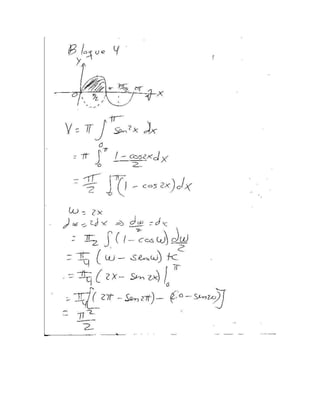 Bloque 4
y
0 π/2 π x
V = π ∫₀^π sen²x dx
= π ∫₀^π (1 - cos2x)/2 dx
= π/2 ∫₀^π (1 - cos 2x) dx
w = 2x
dw = 2dx ⇒ dw/2 = dx
= π/2 ∫ (1 - cos w) dw/2
= π/4 (w - sen w) + c
= π/4 (2x - sen 2x) |₀^π
= π/4 [(2π - sen 2π) - (2·0 - sen 2·0)]
= π²/2